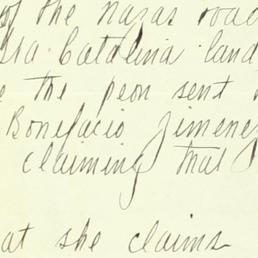 of the nazas road
Sta Catalina land
e the peon sent
Bonifacio Jimenez
claiming that
at she claims